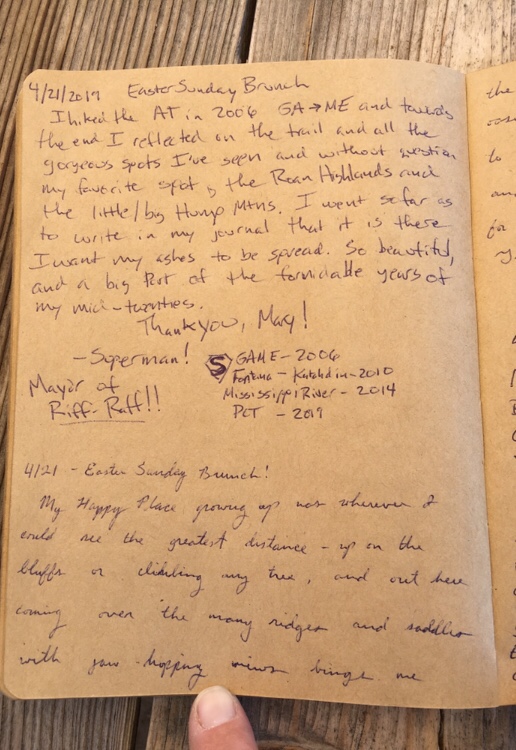 4/21/2019 Easter Sunday Brunch
I hiked the AT in 2006 GA→ME and towards
the end I reflected on the trail and all the
gorgeous spots I've seen and without question
my favorite spot is the Roan Highlands and
the little/big Hump Mtns. I went so far as
to write in my journal that it is there
I want my ashes to be spread. So beautiful,
and a big part of the formidable years of
my mid-twenties.
Thank you, Mary!
-Superman!
Mayor of
Riff-Raff!!
S GAME - 2006
Fontana - Katahdin - 2010
Mississippi River - 2014
PCT - 2019
4/21 - Easter Sunday Brunch!
My Happy Place growing up was wherever I
could see the greatest distance - up on the
bluffs or climbing any tree, and out here
coming over the many ridges and saddles
with jaw-dropping views brings me
the
to